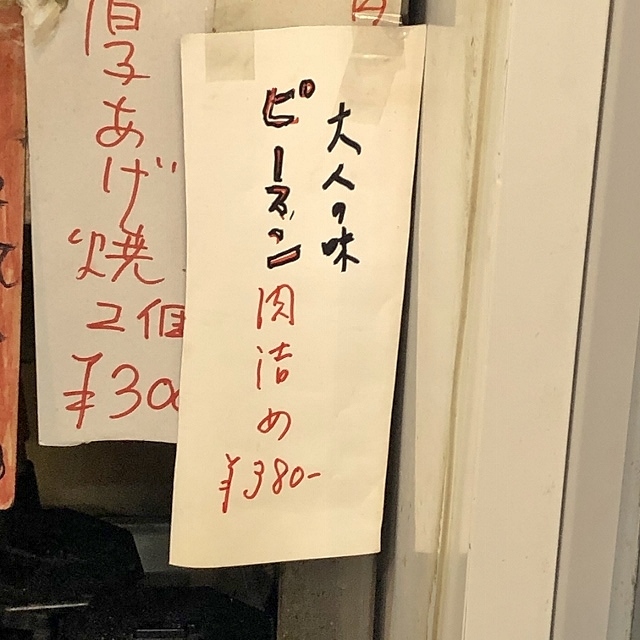 大人の味
ピーマン肉詰め
¥380-
厚あげ焼
2個
¥300